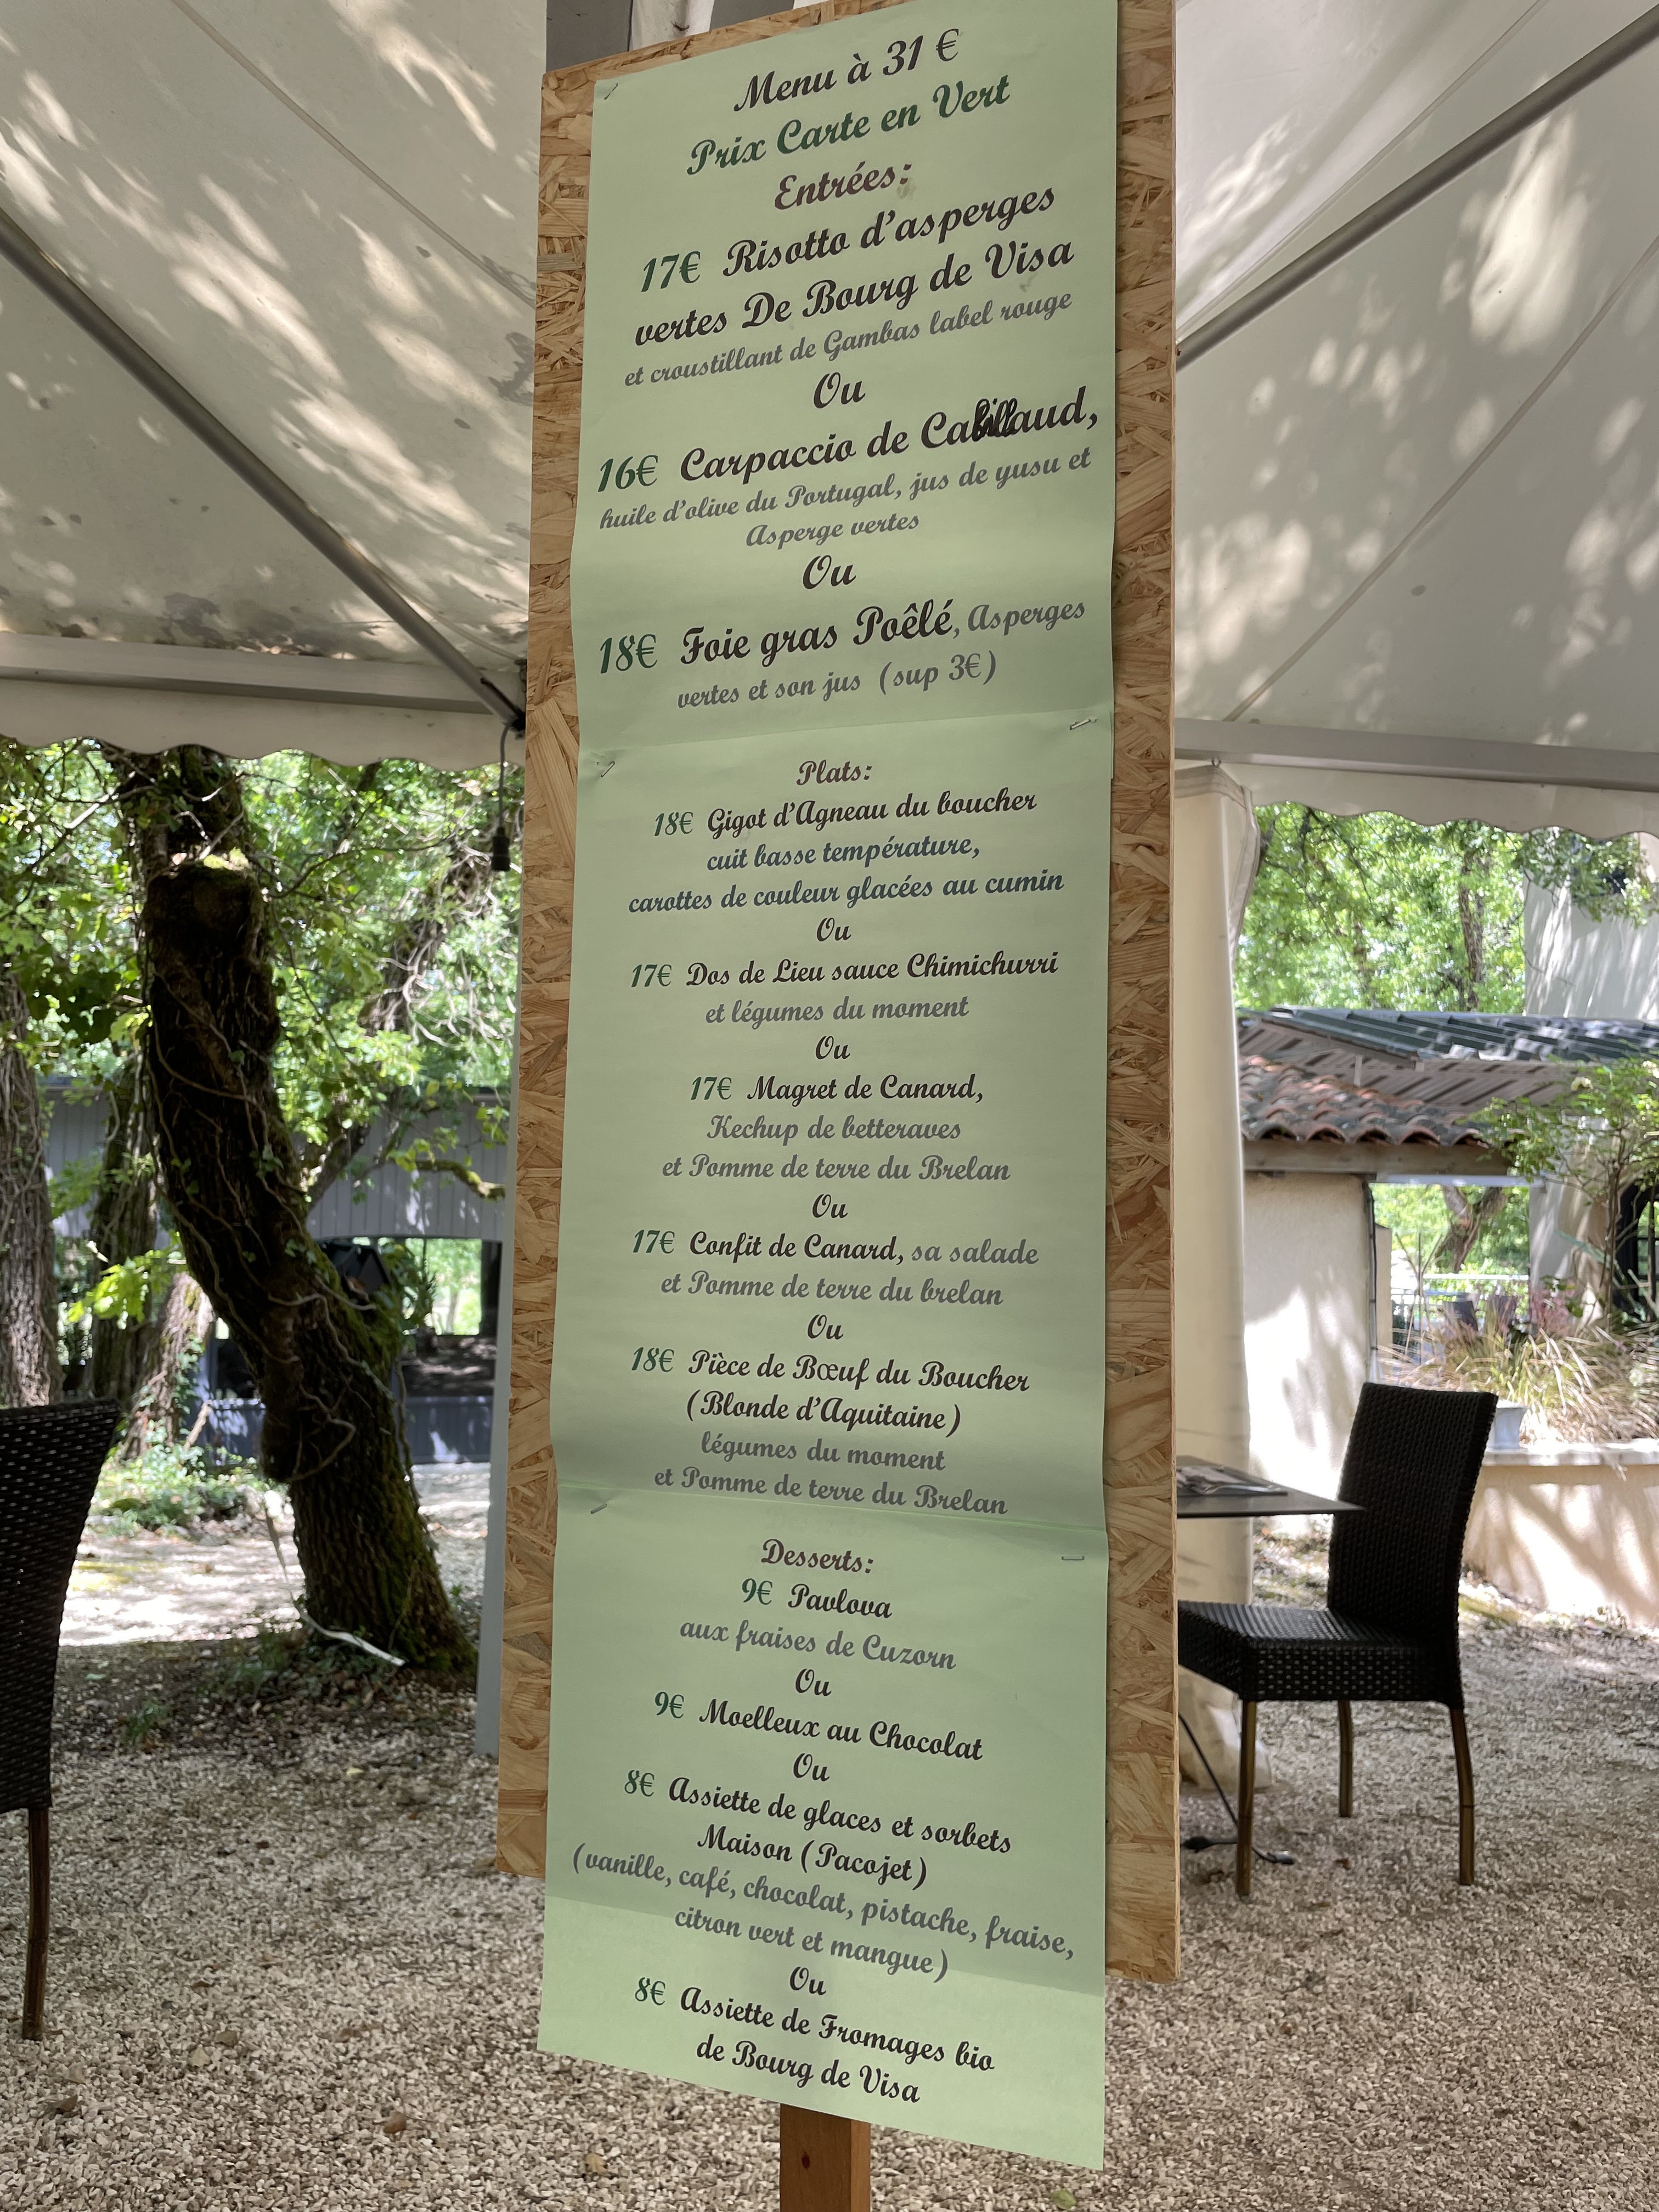 Menu à 31 €
Prix Carte en Vert
Entrées:
17€ Risotto d'asperges
vertes De Bourg de Visa
et croustillant de Gambas label rouge
Ou
16€ Carpaccio de Cabillaud,
huile d'olive du Portugal, jus de yusu et
Asperge vertes
Ou
18€ Foie gras Poêlé, Asperges
vertes et son jus (sup 3€)
Plats:
18€ Gigot d'Agneau du boucher
cuit basse température,
carottes de couleur glacées au cumin
Ou
17€ Dos de Lieu sauce Chimichurri
et légumes du moment
Ou
17€ Magret de Canard,
Kechup de betteraves
et Pomme de terre du Brelan
Ou
17€ Confit de Canard, sa salade
et Pomme de terre du brelan
Ou
18€ Pièce de Bœuf du Boucher
(Blonde d'Aquitaine)
légumes du moment
et Pomme de terre du Brelan
Desserts:
9€ Pavlova
aux fraises de Cuzorn
Ou
9€ Moelleux au Chocolat
Ou
8€ Assiette de glaces et sorbets
Maison (Pacojet)
(vanille, café, chocolat, pistache, fraise,
citron vert et mangue)
Ou
8€ Assiette de Fromages bio
de Bourg de Visa